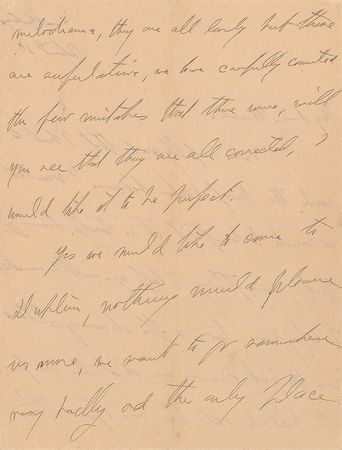 melodians, they are all lovely but these
are superlative, we have carefully corrected
the few mistakes that there were, will
you see that they are all corrected, I
would like it to be perfect.
Yes we would like to come to
nothing would please
us more, we want to go somewhere
very badly and the only place